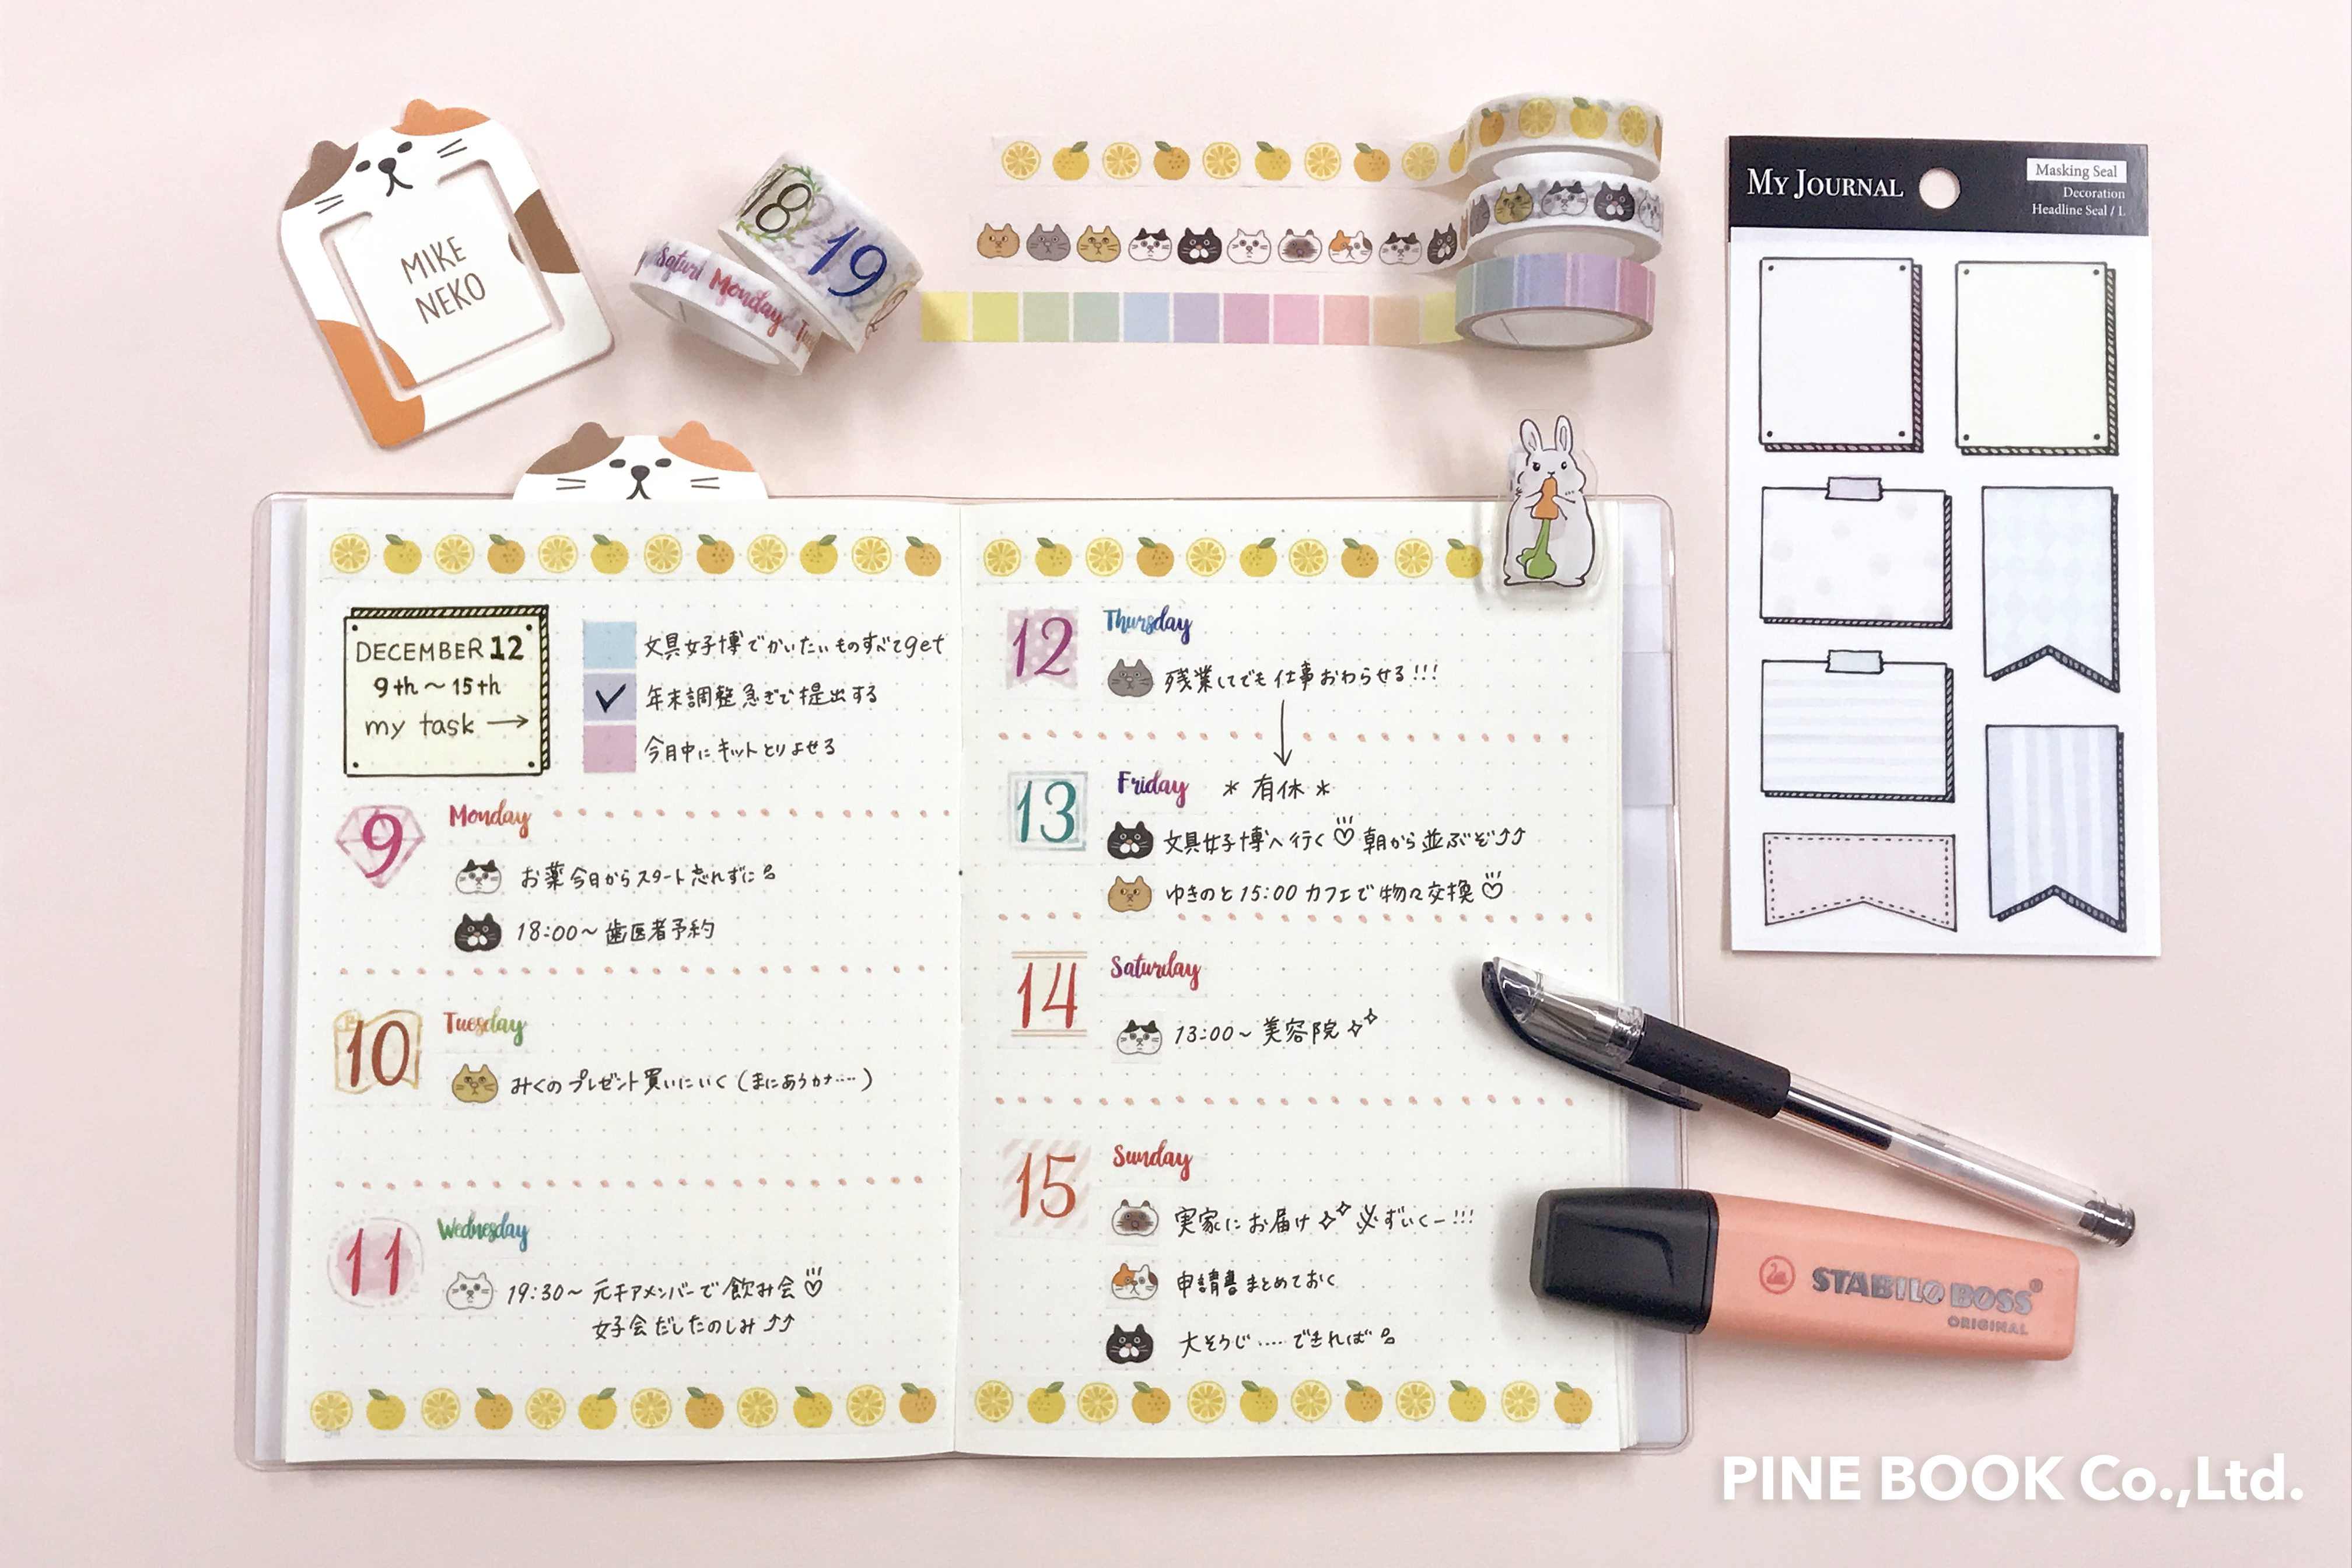 MIKE
NEKO
Monday
18
19
MY JOURNAL
Masking Seal
Decoration
Headline Seal / L
DECEMBER 12
9th～15th
my task →
文具女子博でかいたいものすべてget
年末調整急ぎで提出する
今月中にキットとりよせる
9
Monday
お薬今日からスタート忘れずに
18:00～歯医者予約
10
Tuesday
みくのプレゼント買いにいく(まにあうカナ……)
11
Wednesday
19:30～元チアメンバーで飲み会♡
女子会だしたのしみ⤴⤴
12
Thursday
残業してでも仕事おわらせる!!!
13
Friday
＊有休＊
文具女子博へ行く♡朝から並ぶぞ⤴⤴
ゆきのと15:00カフェで物々交換♡
14
Saturday
13:00～美容院
15
Sunday
実家にお届け 必ずいくー!!!
申請書まとめておく
大そうじ……できれば
STABILO BOSS®
ORIGINAL
PINE BOOK Co.,Ltd.